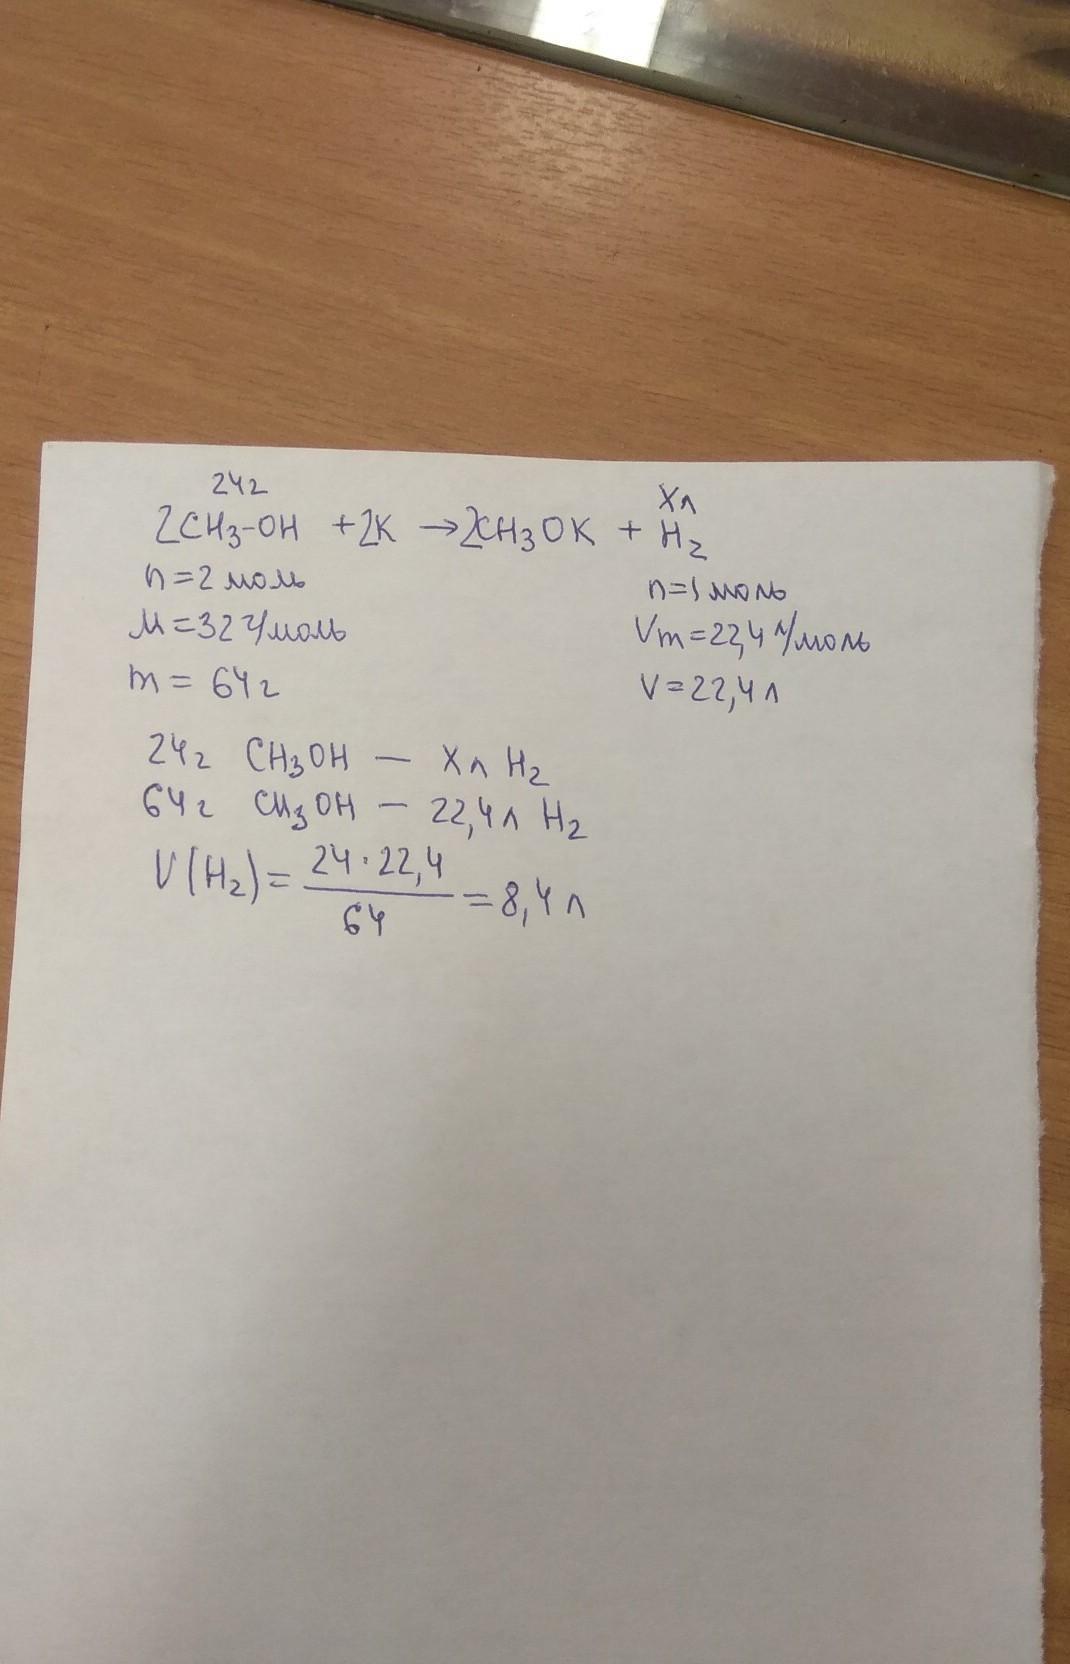 24г Xл
2CH3-OH +2K →2CH3OK + H2
n=2 моль n=1 моль
M=32 г/моль Vm=22,4 л/моль
m = 64 г V=22,4 л
24г CH3OH — Xл H2
64г CH3OH — 22,4л H2
V(H2)= 24·22,4 / 64 = 8,4 л